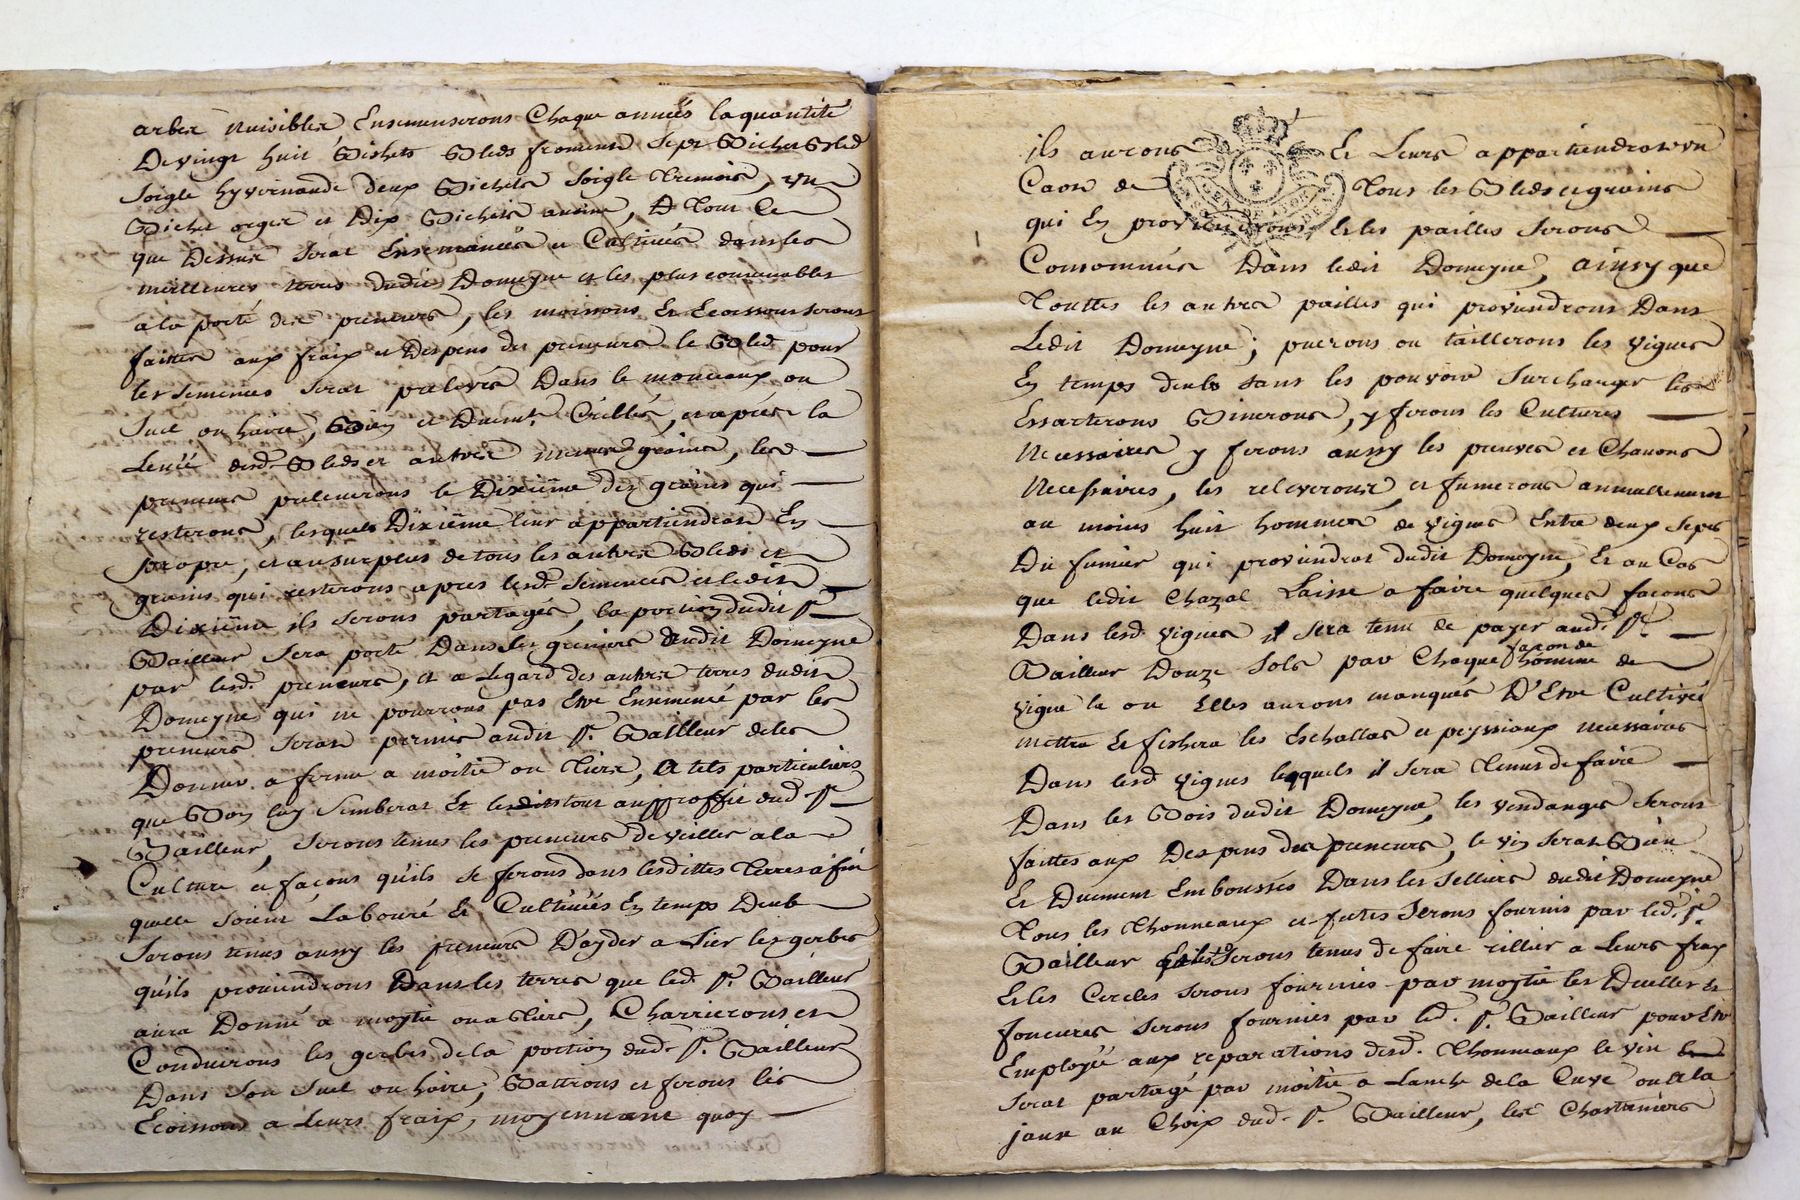 arbre nuisibles Ensemenserons Chaque années la quantité
De vingt huit Bichets Bleds froment sept Bichet Bled
soigle hyvernande deux Bichets soigle tremois, un
Bichet orger et Dix Bichets avoine, A tout Ce
que Dessus serat Ensemencés et Cultivés dans les
meilleures terres dudit Domeyne et les plus convenables
a la porté des preneurs, les moissons Et Ecoissous serons
faittes aux fraix et Despens des preneurs le Bled pour
les semences serat prelevés Dans le monceaux ou
suel ou haire, Bien et Duemt. Criblés, et après la
Levé desd. Bleds et autres menus grains, lesd
preneurs preleverons le Dixième des grains qui
resterons, lesquels Dixième leur appartiendrat En
propre, et au surplus de tous les autres Bleds et
grains qui resterons apres lesd. semences et ledit
Dixiême ils serons partagés, la portion dudit Sr.
Bailleur sera porté Dans les greniers dudit Domeyne
par lesd. preneurs, et a Legard des autres terres dudit
Domeyne qui ne pourrons pas Etre Ensemencé par les
preneurs serat permis audit Sr. Bailleur de les
Donner a ferme a moitié ou tiers, A tels particuliers
que Bon luy semblerat Et le tout au proffit dud. Sr.
Bailleur, serons tenus les preneurs de veiller a la
Culture et façons qu'ils se ferons dans lesdittes terres afin
quelle soient Labouré Et Cultivés En temps Deub
serons tenus aussy les preneurs D'ayder a Lier les gerbes
qu'ils proviendrons Dans les terres que led. Sr. Bailleur
aura Donné a moytié ou a tiers, Charrierons et
Conduirons les gerbes de la portion dud. Sr. Bailleur
Dans son suel ou haire, Battrons et ferons les
Ecoissous a Leurs fraix, moyennant quoy
ils aurons Et Leurs appartiendrat un
de tous les Bleds et grains
qui En proviendrons, Et les pailles serons
Consommées Dans ledit Domeyne, ainsy que
touttes les autres pailles qui proviendrons Dans
Ledit Domeyne; puerons ou taillerons les vignes
En temps deub sans les pouvoir surcharger les
Essarterons Binerons, y ferons les Cultures
Necessaires y ferons aussy les preuves et Chavons
Necessaires, les releverons, et fumerons annuellement
au moins huit hommés de vignes Entre deux seps
Du fumier qui proviendrat dudit Domeyne, Et au Cas
que ledit Chazal Laisse a faire quelques façons
Dans lesd. vignes il sera tenu de payer aud. Sr.
Bailleur Douze sols par Chaque façon de hommée de
vigne la ou Elles aurons manqués D'Etre Cultivé
mettra Et fichera les Eschallas et peyssiaux necessaires
Dans lesd. vignes lesquels il sera tenus de faire
Dans les Bois dudit Domeyne, les vendanges serons
faittes aux Despens des preneurs, le vin serat Bien
Et Duement Emboussés Dans les selliers dudit Domeyne
tous les thonneaux et futs serons fournis par led. Sr.
Bailleur quils serons tenus de faire rillier a Leurs frais
Et les Cercles serons fournies par moytié les Duelles et
fonçures serons fournies par led. Sr. Bailleur pour Etre
Employé aux reparations desd. thonneaux le vin
serat partagé par moitié a Lanche de la Cuve ou a la
jaux au Choix dud. Sr. Bailleur, les Chartaniers